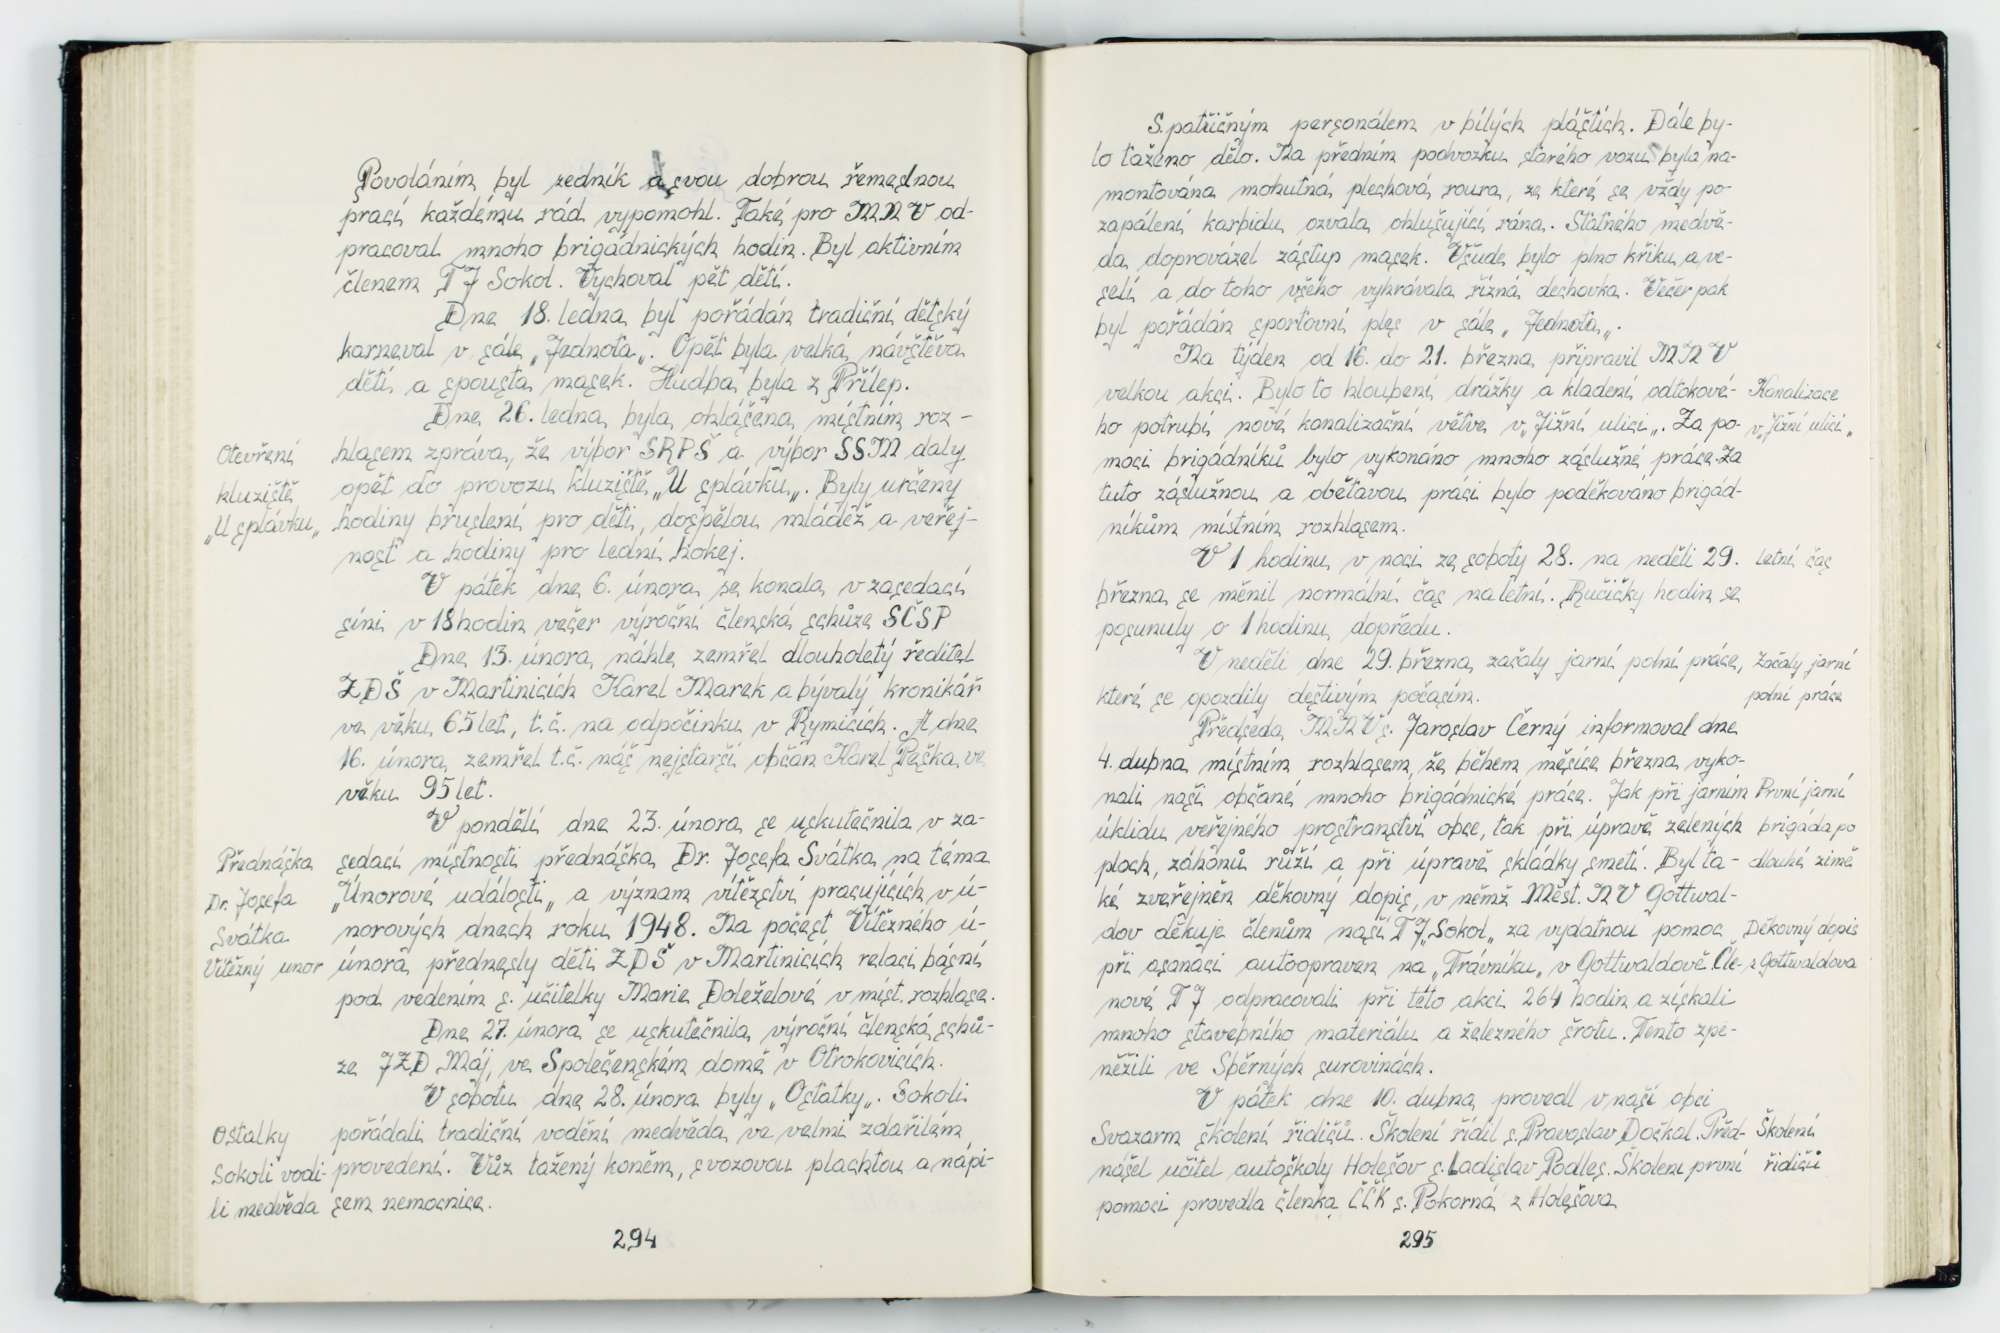 Povoláním byl zedník a svou dobrou řemeslnou
prací každému rád vypomohl. Také pro MNV od-
pracoval mnoho brigádnických hodin. Byl aktivním
členem TJ Sokol. Vychoval pět dětí.
Dne 18. ledna byl pořádán tradiční dětský
karneval v sále „Jednota„. Opět byla velká návštěva
dětí a spousta masek. Hudba byla z Přílep.
Dne 26. ledna byla ohlášena místním roz-
hlasem zpráva, že výbor SRPŠ a výbor SSM daly
opět do provozu kluziště „U splávku„. Byly určeny
hodiny bruslení pro děti, dospělou mládež a veřej-
nost a hodiny pro lední hokej.
Otevření
kluziště
„U splávku„
V pátek dne 6. února se konala v zasedací
síni v 18 hodin večer výroční členská schůze SČSP
Dne 13. února náhle zemřel dlouholetý ředitel
ZDŠ v Martinicích Karel Marek a bývalý kronikář
ve věku 65 let, t.č. na odpočinku v Rymicích. A dne
16. února zemřel t.č. náš nejstarší občan Karel Peška ve
věku 95 let.
V pondělí dne 23. února se uskutečnila v za-
sedací místnosti přednáška Dr. Josefa Svátka na téma
„Únorové události„ a význam vítězství pracujících v ú-
norových dnech roku 1948. Na počest Vítězného ú-
února přednesly děti ZDŠ v Martinicích relaci básní
pod vedením s. učitelky Marie Doleželové v míst. rozhlase.
Přednáška
Dr. Josefa
Svátka
Vítězný unor
Dne 27. února se uskutečnila výroční členská schů-
ze JZD Máj, ve Společenském domě v Otrokovicích.
V sobotu dne 28. února byly „Ostatky„. Sokoli
pořádali tradiční vodění medvěda ve velmi zdařilém
provedení. Vůz tažený koněm, s vozovou plachtou a nápi-
sem nemocnice.
Ostatky
Sokoli vodi-
li medvěda
294
S patřičným personálem v bílých pláštích. Dále by-
lo taženo dělo. Na předním podvozku starého vozu byla na-
montována mohutná plechová roura, ze které se vždy po
zapálení karbidu ozvala ohlušující rána. Statného medvě-
da doprovázel zástup masek. Všude bylo plno křiku a ve-
selí a do toho všeho vyhrávala řízná dechovka. Večer pak
byl pořádán sportovní ples v sále „Jednota„.
Na týden od 16. do 21. března připravil MNV
velkou akci. Bylo to hloubení drážky a kladení odtokové-
ho potrubí nové kanalizační větve v „Jižní ulici„. Za po-
moci brigádníků bylo vykonáno mnoho záslužné práce. Za
tuto záslužnou a obětavou práci bylo poděkováno brigád-
níkům místním rozhlasem.
Kanalizace
v „Jižní ulici„
V 1 hodinu v noci ze soboty 28. na neděli 29.
března se měnil normální čas na letní. Ručičky hodin se
posunuly o 1 hodinu dopředu.
letní čas
V neděli dne 29. března začaly jarní polní práce,
které se opozdily deštivým počasím.
Začaly jarní
polní práce
Předseda MNV s. Jaroslav Černý informoval dne
4. dubna místním rozhlasem, že během měsíce března vyko-
nali naši občané mnoho brigádnické práce. Jak při jarním
úklidu veřejného prostranství obce, tak při úpravě zelených
ploch, záhonů růží a při úpravě skládky smetí. Byl ta-
ké zveřejněn děkovný dopis, v němž Měst. NV Gottwal-
dov děkuje členům naší TJ „Sokol„ za vydatnou pomoc
při asanaci autoopraven na „Trávníku„ v Gottwaldově. Čle-
nové TJ odpracovali při této akci 264 hodin a získali
mnoho stavebního materiálu a železného šrotu. Tento zpe-
něžili ve Sběrných surovinách.
První jarní
brigáda po
dlouhé zimě
Děkovný dopis
z Gottwaldova
V pátek dne 10. dubna provedl v naší obci
Svazarm školení řidičů. Školení řídil s. Pravoslav Dočkal. Před-
nášel učitel autoškoly Holešov s. Ladislav Podleš. Školení první
pomoci provedla členka ČČK s. Pokorná z Holešova
Školení
řidičů
295